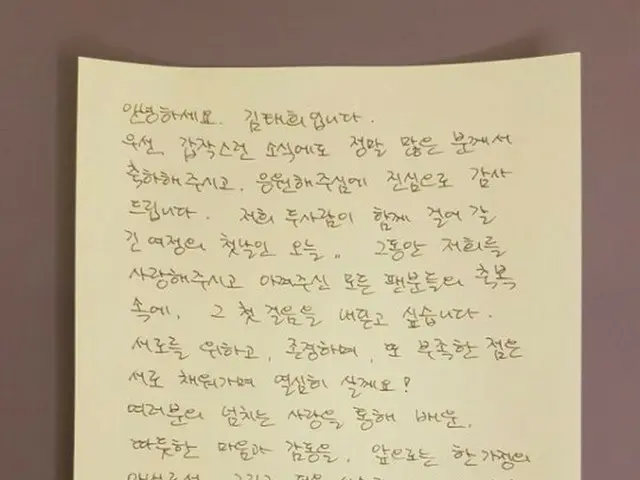 안녕하세요. 김태희입니다.
우선, 갑작스런 소식에도 정말 많은 분께서
축하해주시고, 응원해주심에 진심으로 감사
드립니다. 저희 두사람이 함께 걸어 갈
긴 여정의 첫날인 오늘.. 그동안 저희를
사랑해주시고 아껴주신 모든 팬분들의 축복
속에, 그 첫 걸음을 내딛고 싶습니다.
서로를 위하고, 존경하며, 또 부족한 점은
서로 채워가며 열심히 살게요!
여러분의 넘치는 사랑을 통해 배운,
따뜻한 마음과 감동을, 앞으로는 한 가정의